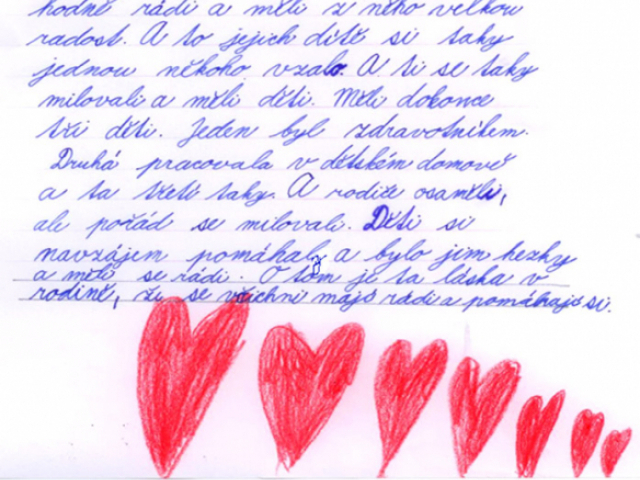 hodně rádi a měli z něho velkou
radost. A to jejich dítě si taky
jednou někoho vzalo. A ti se taky
milovali a měli děti. Měli dokonce
tři děti. Jeden byl zdravotníkem.
Druhá pracovala v dětském domově
a ta třetí taky. A rodiče osaměli,
ale pořád se milovali. Děti si
navzájem pomáhaly a bylo jim hezky
a měli se rádi. O tom je ta láska v
rodině, že se všichni mají rádi a pomáhají si.